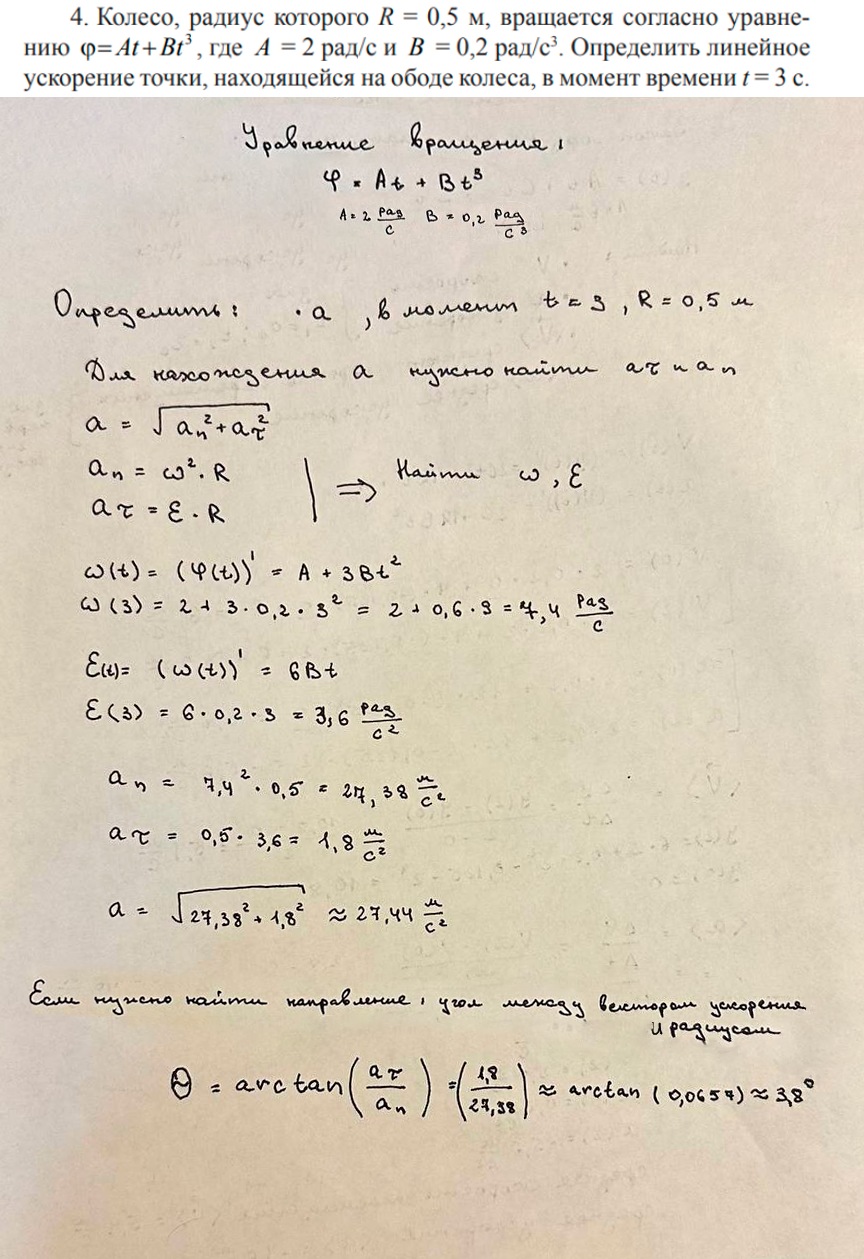 4. Колесо, радиус которого R = 0,5 м, вращается согласно уравне-
нию φ=At+Bt³, где A = 2 рад/с и B = 0,2 рад/с³. Определить линейное
ускорение точки, находящейся на ободе колеса, в момент времени t = 3 с.
Уравнение вращения:
φ = At + Bt³
A = 2 рад/с B = 0,2 рад/с³
Определить: · a , в момент t = 3 , R = 0,5 м
Для нахождения a нужно найти aτ и an
a = √(an² + aτ²)
an = ω² · R
aτ = ε · R
⇒ Найти ω, ε
ω(t) = (φ(t))' = A + 3Bt²
ω(3) = 2 + 3 · 0,2 · 3² = 2 + 0,6 · 9 = 7,4 рад/с
ε(t) = (ω(t))' = 6Bt
ε(3) = 6 · 0,2 · 3 = 3,6 рад/с²
an = 7,4² · 0,5 = 27,38 м/с²
aτ = 0,5 · 3,6 = 1,8 м/с²
a = √(27,38² + 1,8²) ≈ 27,44 м/с²
Если нужно найти направление, угол между вектором ускорения
и радиусом
Θ = arctan(aτ/an) = (1,8/27,38) ≈ arctan (0,0657) ≈ 3,8°